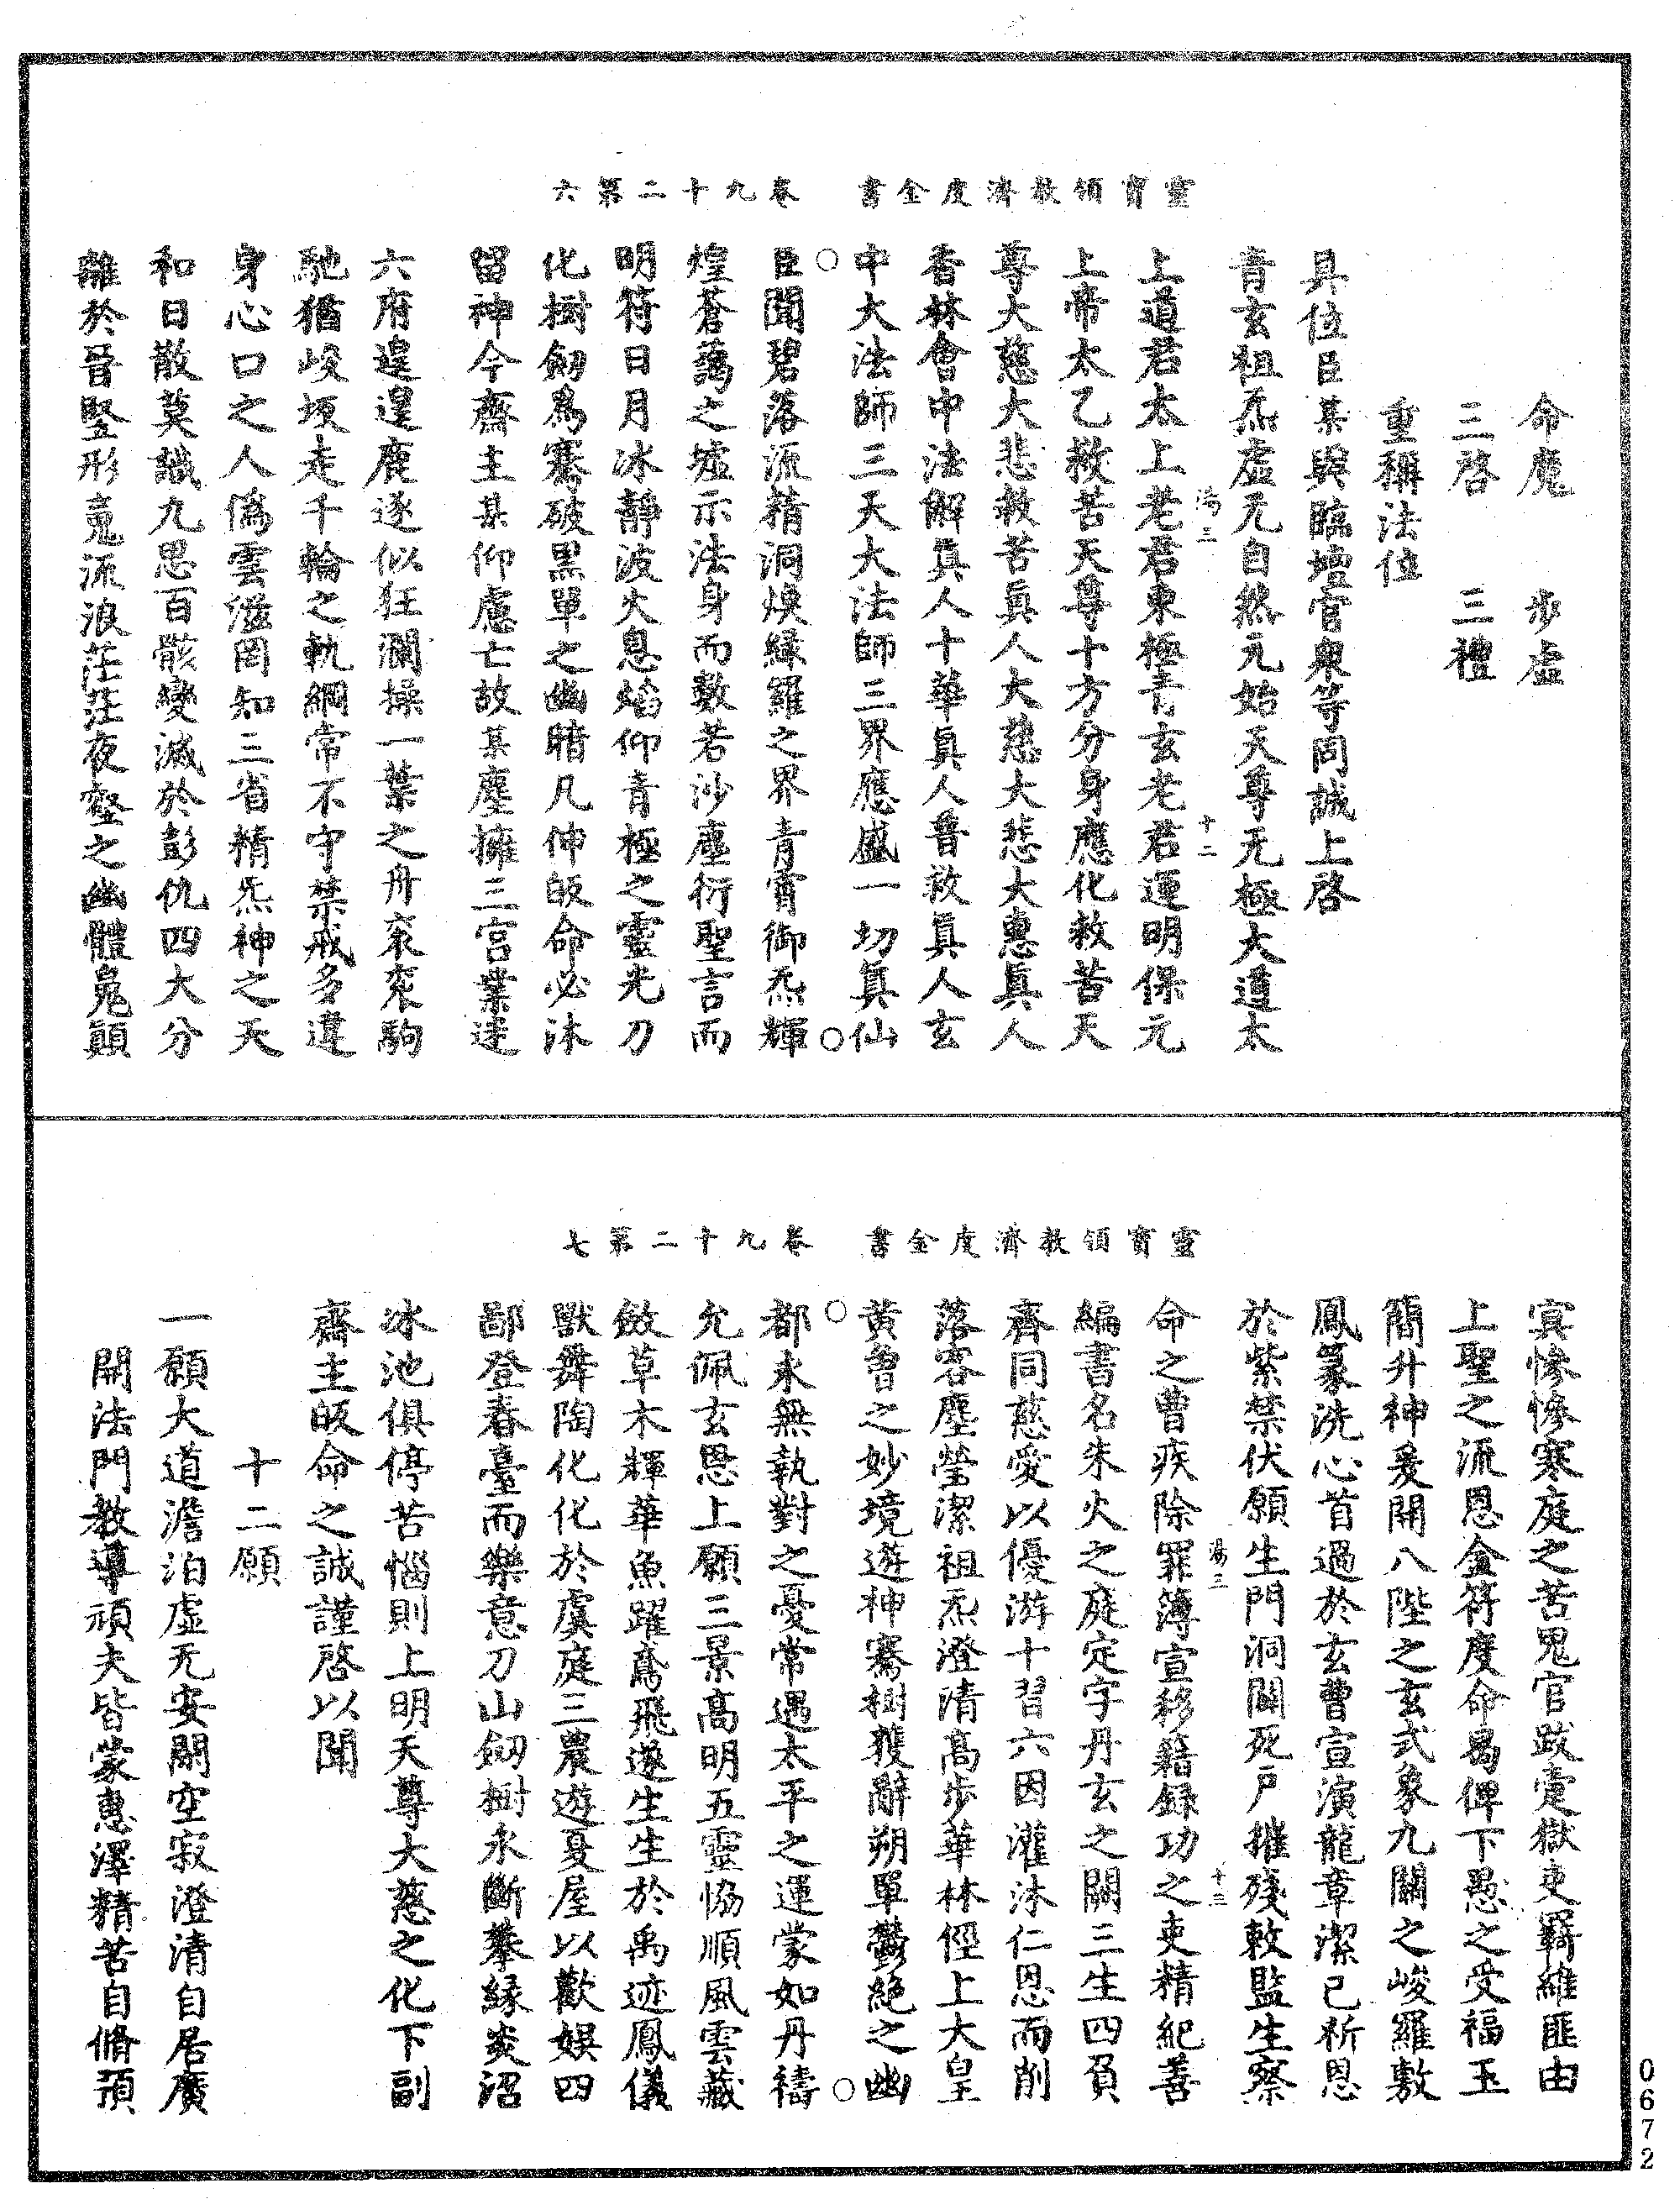 靈寶領教濟度金書　卷九十二第六
命魔　　步虛
三啓　　三禮
重稱法位
具位臣某與臨壇官衆等同誠上啓
青玄祖炁虛无自然元始天尊无極大道太
上道君太上老君東極青玄老君運明保元
湯三　十二
上帝太乙救苦天尊十方分身應化救苦天
尊大慈大悲救苦眞人大慈大悲大惠眞人
香林會中法解眞人十華眞人普救眞人玄
中大法師三天大法師三界應感一切眞仙
○　○
臣聞碧落流精洞煥緑羅之界青霄御炁輝
煌蒼藹之墟示法身而數若沙塵衍聖言而
明符日月冰靜波火息焰仰青極之靈光刀
化樹劒爲騫破黑單之幽暗凡伸皈命必沐
留神今齋主某仰慮亡故某塵擁三宮業迷
六府遑遑鹿逐似狂瀾操一葉之舟衮衮駒
馳猶峻坂走千輪之軌綱常不守禁戒多違
身心口之人僞雲滋罔知三省精炁神之天
和日散莫識九思百骸變滅於彭仇四大分
離於晉竪形䰟流浪茫茫夜壑之幽體鬼顚
靈寶領教濟度金書　卷九十二第七
寘慘慘寒庭之苦鬼官跂疐獄吏羇維匪由
上聖之流恩金符度命曷俾下愚之受福玉
簡升神爰開八陛之玄式象九關之峻羅敷
鳳篆洗心首過於玄曹宣演龍章潔己祈恩
於紫禁伏願生門洞闢死戶摧殘敕監生察
湯三　十三
命之曹疾除罪簿宣移籍録功之吏精紀善
編書名朱火之庭定字丹玄之闕三生四負
齊同慈愛以優游十習六因灌沐仁恩而削
落客塵瑩潔祖炁澄清高步華林徑上大皇
黄曾之妙境遊神騫樹獲辭朔單鬱絶之幽
○　○
都永無執對之憂常遇太平之運蒙如丹禱
允佩玄恩上願三景高明五靈恊順風雲藏
斂草木輝華魚躍鳶飛遂生生於禹迹鳳儀
獸舞陶化化於虞庭三農遊夏屋以歡娛四
鄙登春臺而樂意刀山劒樹永斷攀緣炎沼
冰池俱停苦惱則上明天尊大慈之化下副
齋主皈命之誠謹啓以聞
十二願
一願大道澹泊虛无安閑空寂澄清自居廣
開法門教導頑夫皆蒙惠澤精苦自脩預
0672